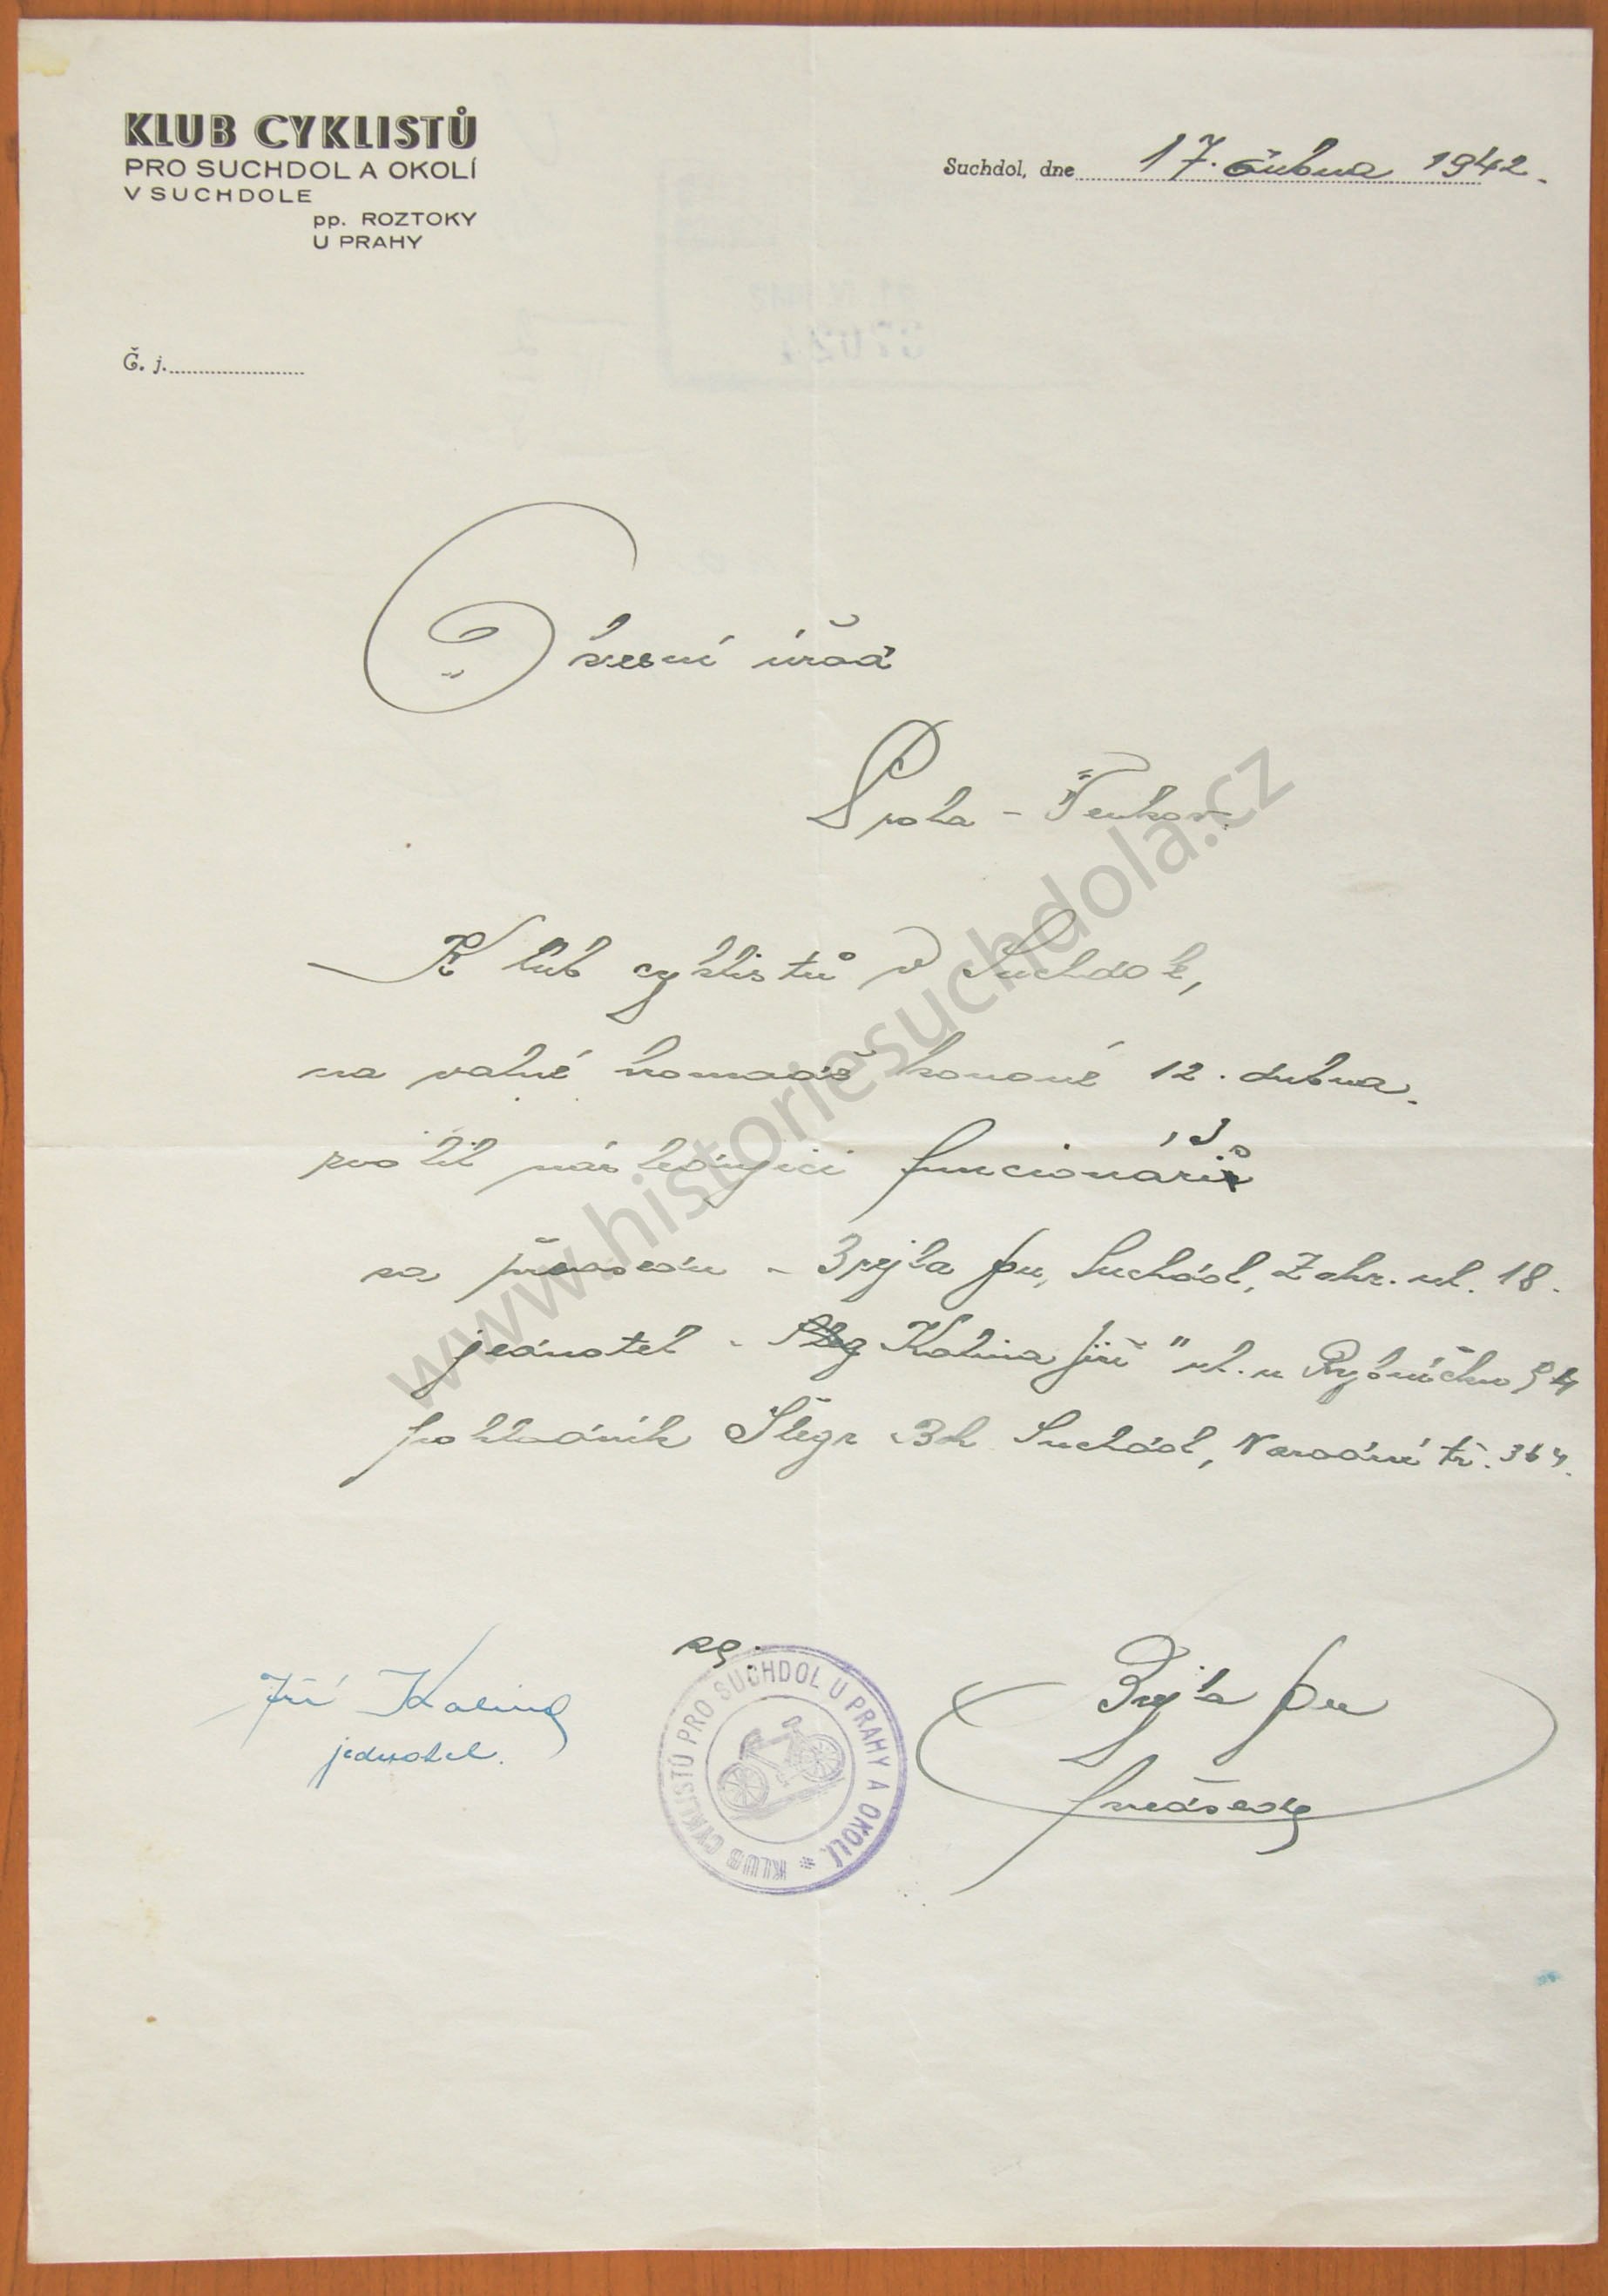 KLUB CYKLISTŮ
PRO SUCHDOL A OKOLÍ
V SUCHDOLE
pp. ROZTOKY
U PRAHY
Suchdol, dne 17. dubna 1942.
Č. j.
Okresní úřad
Praha - Venkov.
Klub cyklistů v Suchdole,
na valné hromadě konané 12. dubna.
zvolil následující funcionáře
za předsedu - Brejla Jar, Suchdol, Zahr. ul. 18.
jednatel - Kalina Jiří " ul. u Rybníčku 54
pokladník Štégr Boh Suchdol, Národní tř. 364.
za:
Jiří Kalina
jednatel.
Brejla Jar
předseda
KLUB CYKLISTŮ PRO SUCHDOL U PRAHY A OKOLÍ *
www.historiesuchdola.cz